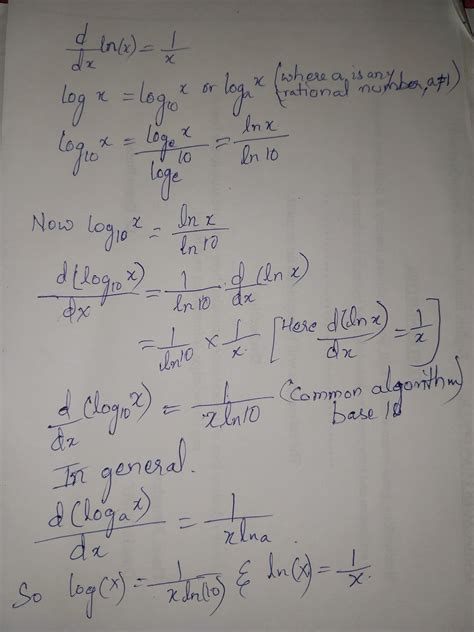 d/dx ln(x) = 1/x
log x = log₁₀ x or logₐ x (where a is any rational number, a≠1)
log₁₀ x = logₑ x / logₑ 10 = ln x / ln 10
Now log₁₀ x = ln x / ln 10
d(log₁₀ x)/dx = 1/ln 10 · d/dx (ln x)
= 1/ln 10 × 1/x. [Here d(ln x)/dx = 1/x]
d/dx (log₁₀ x) = 1/x ln 10 (Common algorithm base 10)
In general.
d(logₐ x)/dx = 1/x ln a.
So log(x) = 1/x ln(10) & ln(x) = 1/x.